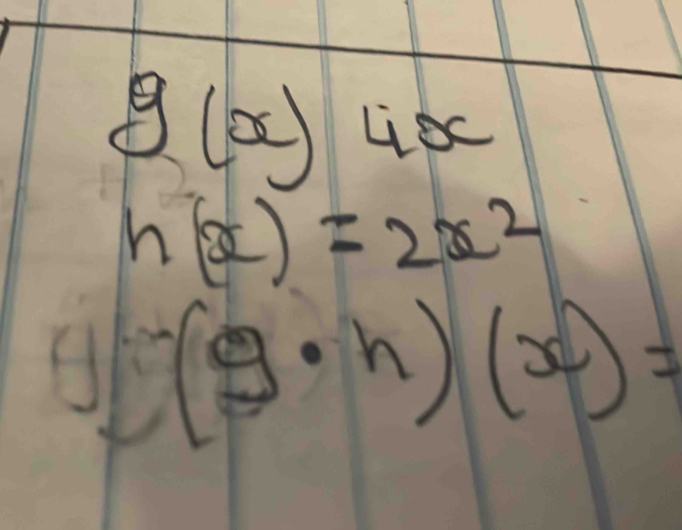 g(x) 4x
h(x) = 2x²
(g • h)(x) =